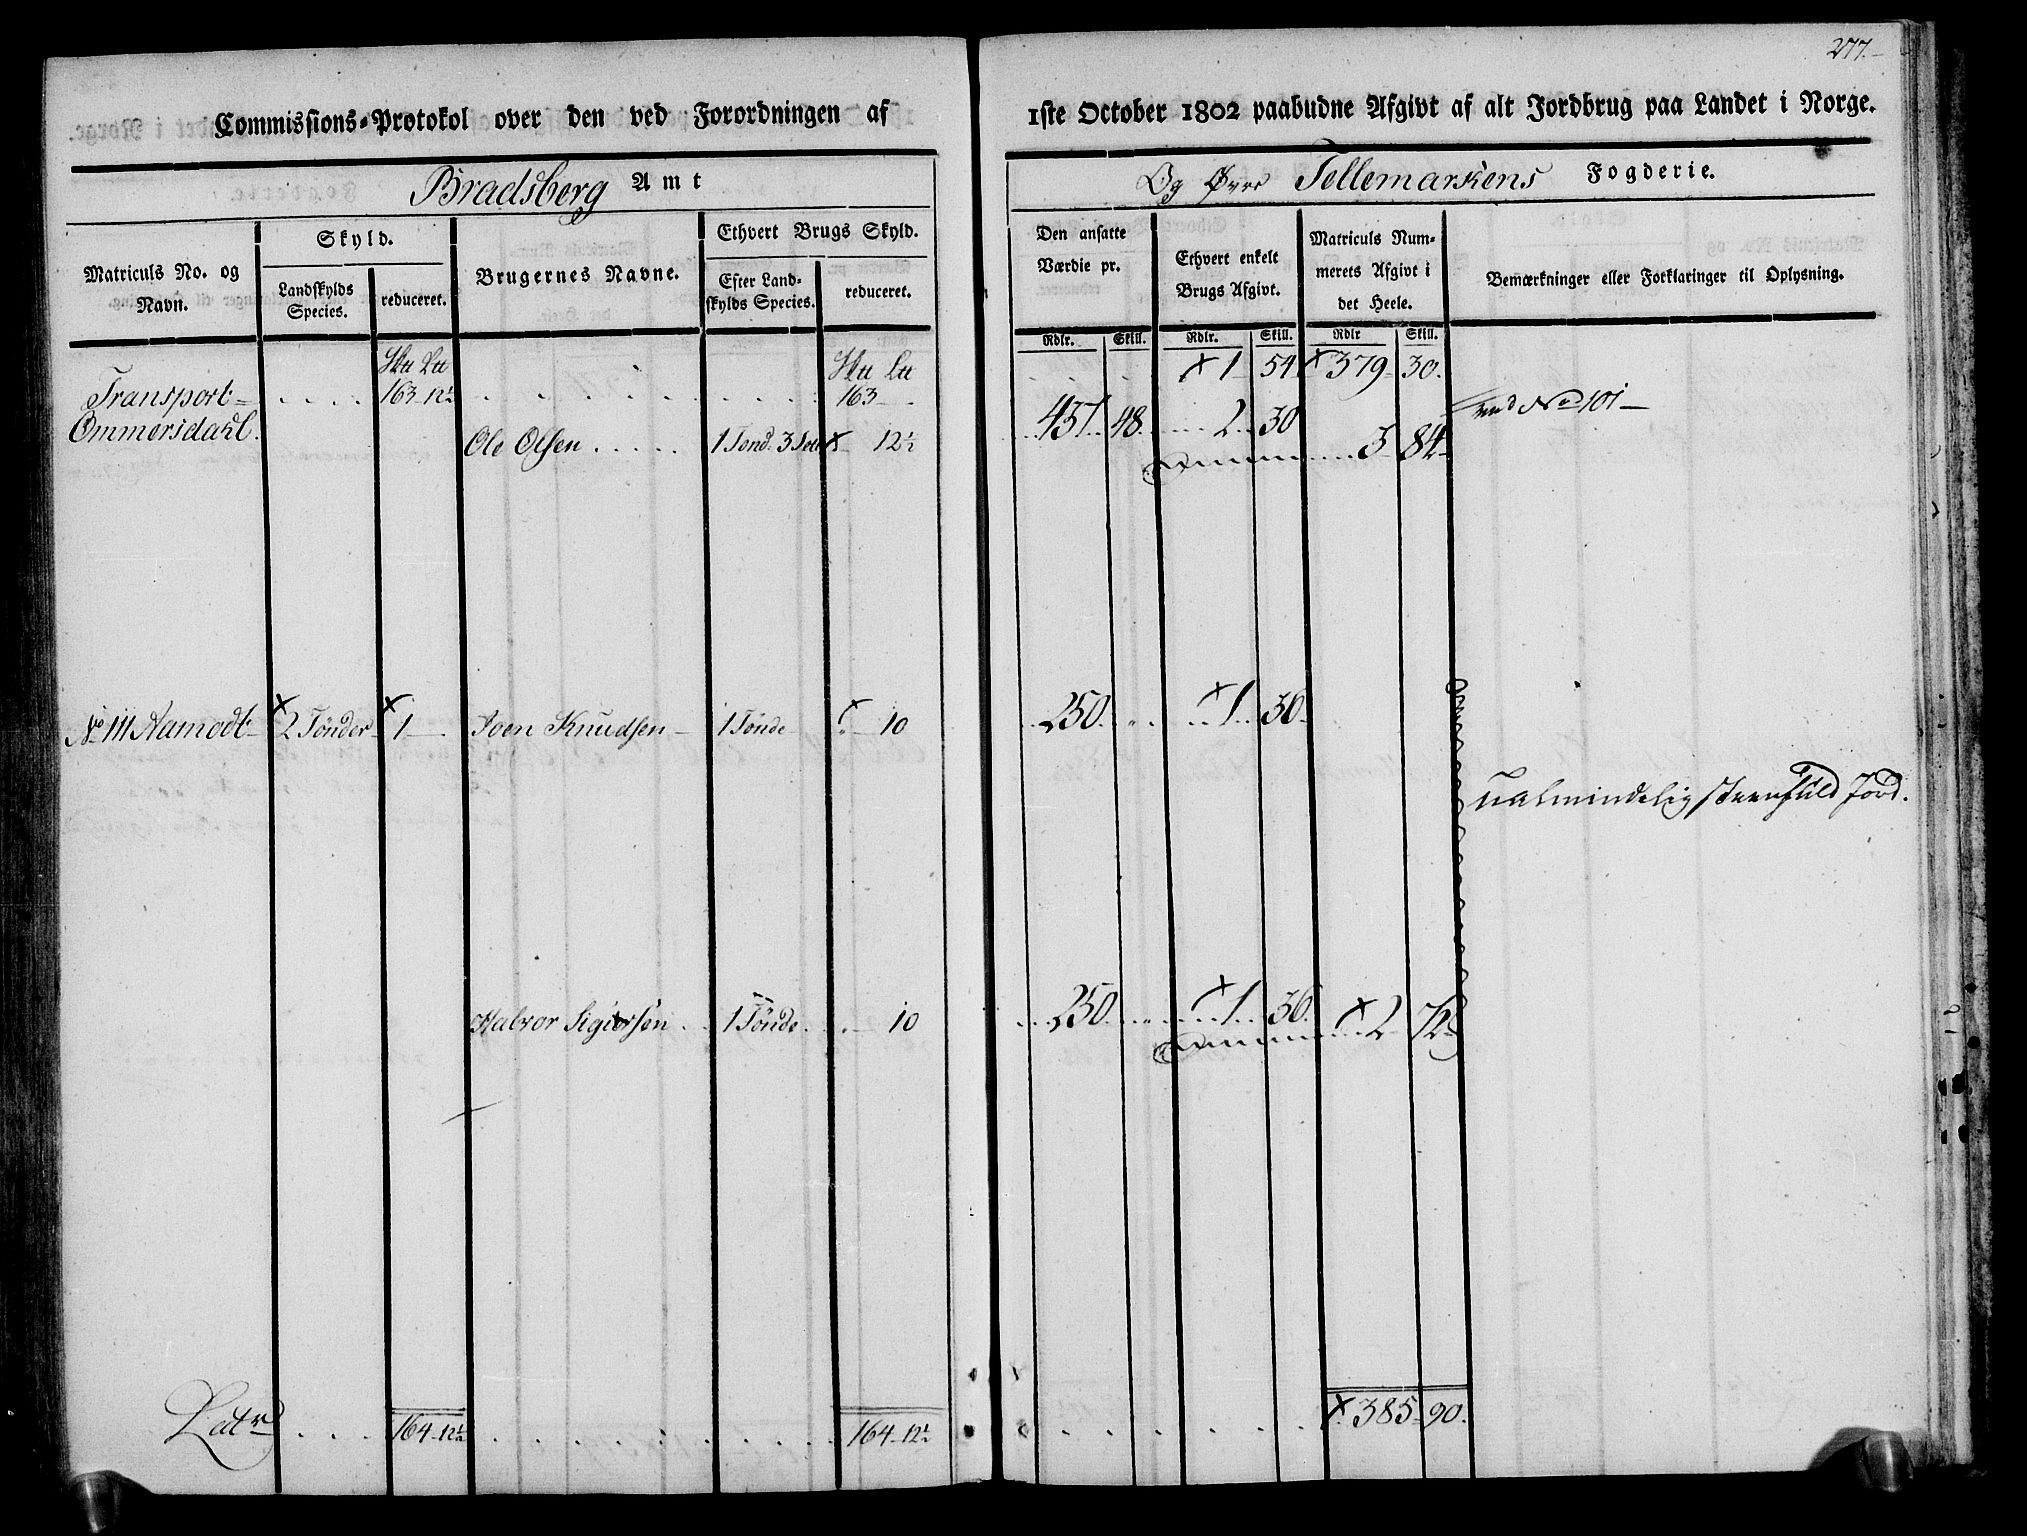 277.
Commissions-Protokol over den ved Forordningen af 1ste October 1802 paabudne Afgivt af alt Jordbrug paa Landet i Norge.
Bradsberg Amt
Og Øvre Tellemarkens Fogderie.
Matriculs No. og Navn.
Skyld.
Landskylds Species.
reduceret.
Brugernes Navne.
Ethvert Brugs Skyld.
Efter Landskylds Species.
reduceret.
Den ansatte Værdie pr.
Rdlr. Skill.
Ethvert enkelt Brugs Afgivt.
Rdlr. Skill.
Matriculs Nummerets Afgivt i det Heele.
Rdlr Skill.
Bemærkninger eller Forklaringer til Oplysning.
Transport 163 12½ 163 1 54 379 30.
Ommersdahl. Ole Olsen 1 Tønd. 3 12½ 437 48 2 30 3 84 No 101
No 111 Aamodt 2 Tønder 1 Joen Knudsen 1 Tønde 10 250 1 36
ualmindelig steenfuld Jord.
Halvor Sigursen 1 Tønde 10 250 1 36 2 72
Latr 164 12½ 164 12½ 385 90.